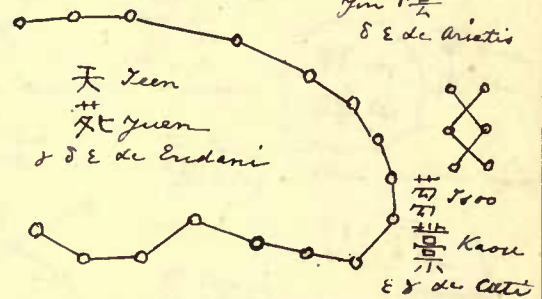 Yin
δ ε &c Arietis
天 Teen
苑 Yuen
γ δ ε &c Eridani
芻 Tsoo
藁 Kaou
ε γ &c Ceti